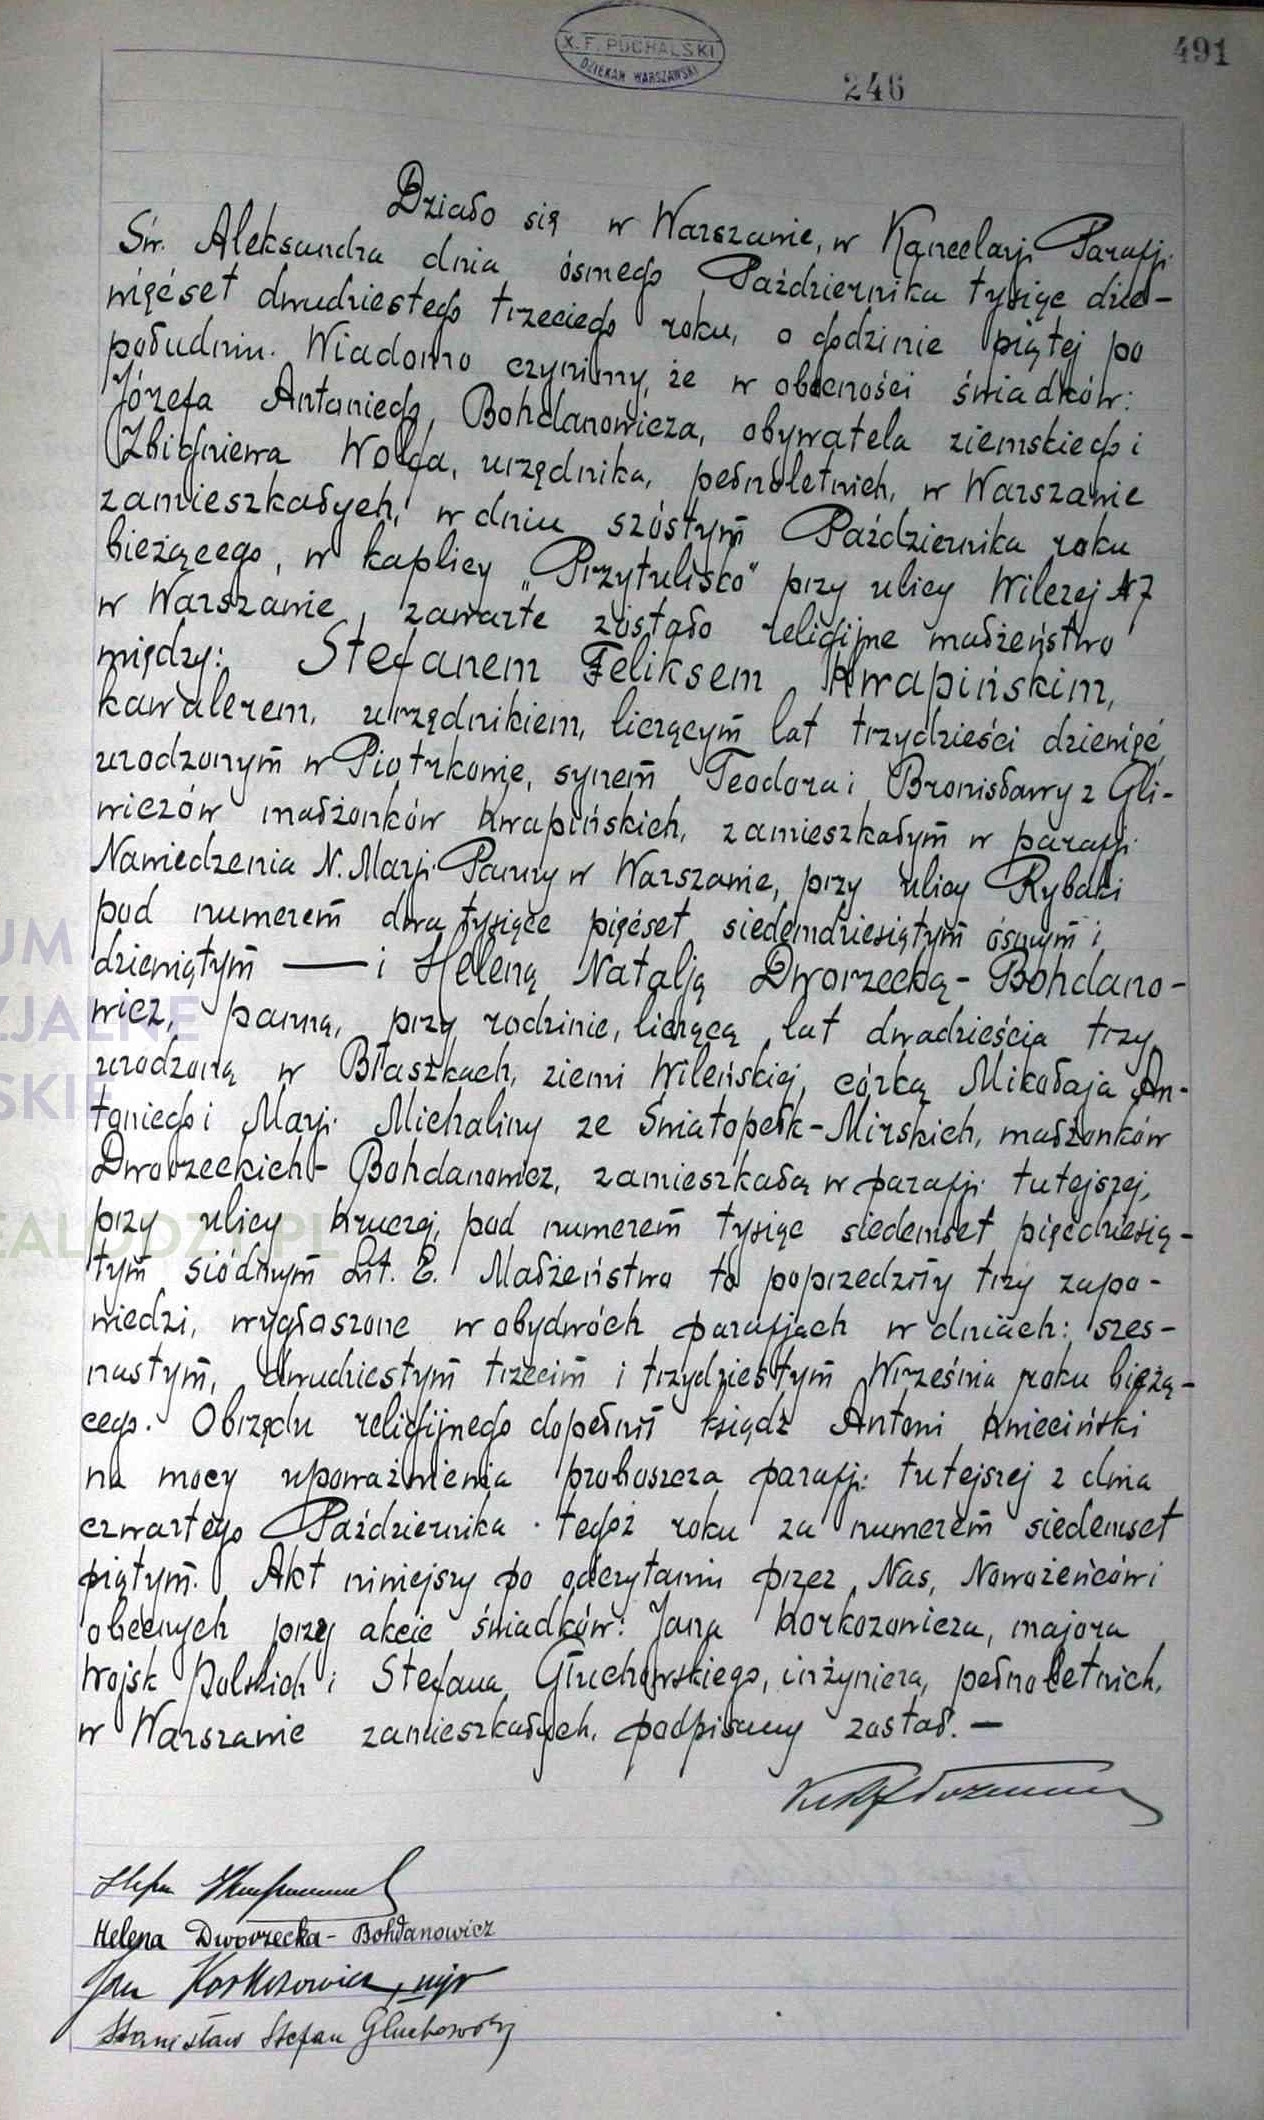 X. F. PUCHALSKI
DZIEKAN WARSZAWSKI
491
246
Działo się w Warszawie, w Kancelarji Parafji
Św. Aleksandra dnia ósmego Października tysiąc dzie-
więćset dwudziestego trzeciego roku, o godzinie piątej po
południu. Wiadomo czynimy, że w obecności świadków:
Józefa Antoniego Bohdanowicza, obywatela ziemskiego i
Zbigniewa Wolga, urzędnika, pełnoletnich, w Warszawie
zamieszkałych, w dniu szóstym Października roku
bieżącego, w kaplicy „Przytulisko" przy ulicy Wilczej № 7
w Warszawie, zawarte zostało religijne małżeństwo
między: Stefanem Feliksem Kwapińskim,
kawalerem, urzędnikiem, liczącym lat trzydzieści dziewięć,
urodzonym w Piotrkowie, synem Teodora i Bronisławy z Gli-
wiczów małżonków Kwapińskich, zamieszkałym w parafji
Nawiedzenia N. Marji Panny w Warszawie, przy ulicy Rybaki
pod numerem dwa tysiące pięćset siedemdziesiątym ósmym i
dziewiątym — i Heleną Natalją Dworzecką-Bohdano-
wicz, panną, przy rodzinie, liczącą lat dwadzieścia trzy,
urodzoną w Błaszkach, ziemi Wileńskiej, córką Mikołaja An-
toniego i Marji Michaliny ze Światopełk-Mirskich, małżonków
Dworzeckich-Bohdanowicz, zamieszkałą w parafji tutejszej,
przy ulicy Kruczej, pod numerem tysiąc siedemset pięćdziesią-
tym siódmym Lit. E. Małżeństwo to poprzedziły trzy zapo-
wiedzi, wygłoszone w obydwóch parafjach w dniach: szes-
nastym, dwudziestym trzecim i trzydziestym Września roku bieżą-
cego. Obrzędu religijnego dopełnił ksiądz Antoni Kwieciński
na mocy upoważnienia proboszcza parafji tutejszej z dnia
czwartego Października tegoż roku za numerem siedemset
piątym. Akt niniejszy po odczytaniu przez Nas, Nowożeńców i
obecnych przy akcie świadków: Jana Korkozowicza, majora
Wojsk Polskich i Stefana Głuchowskiego, inżyniera, pełnoletnich,
w Warszawie zamieszkałych, podpisany został. —
Helena Dworzecka-Bohdanowicz
Jan Korkozowicz, mjr
Stanisław Stefan Głuchowski